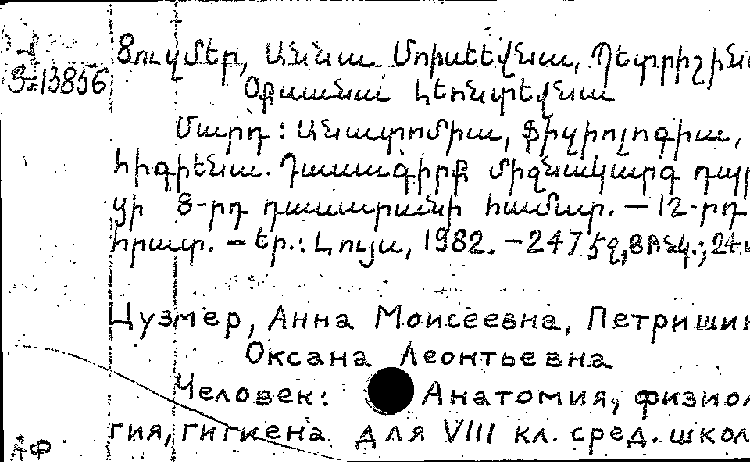 Ցուզմեր, Աննա Մոիսեևնա, Պետրիշինա
Յ-13856 Օքսանա Լեոնտևնա
Մարդ: Անատոմիա, ֆիզիոլոգիա,
հիգիենա. Դասագիրք միջնակարգ դպր
ցի 8-րդ դասարանի համար. — 12-րդ
հրատ. — Եր.: Լույս, 1982. — 247 էջ,
Цузмер, Анна Моисеевна, Петришин
Оксана Леонтьевна
Человек: Анатомия, физиол
гия, гигиена для VIII кл. сред. школ
АФ